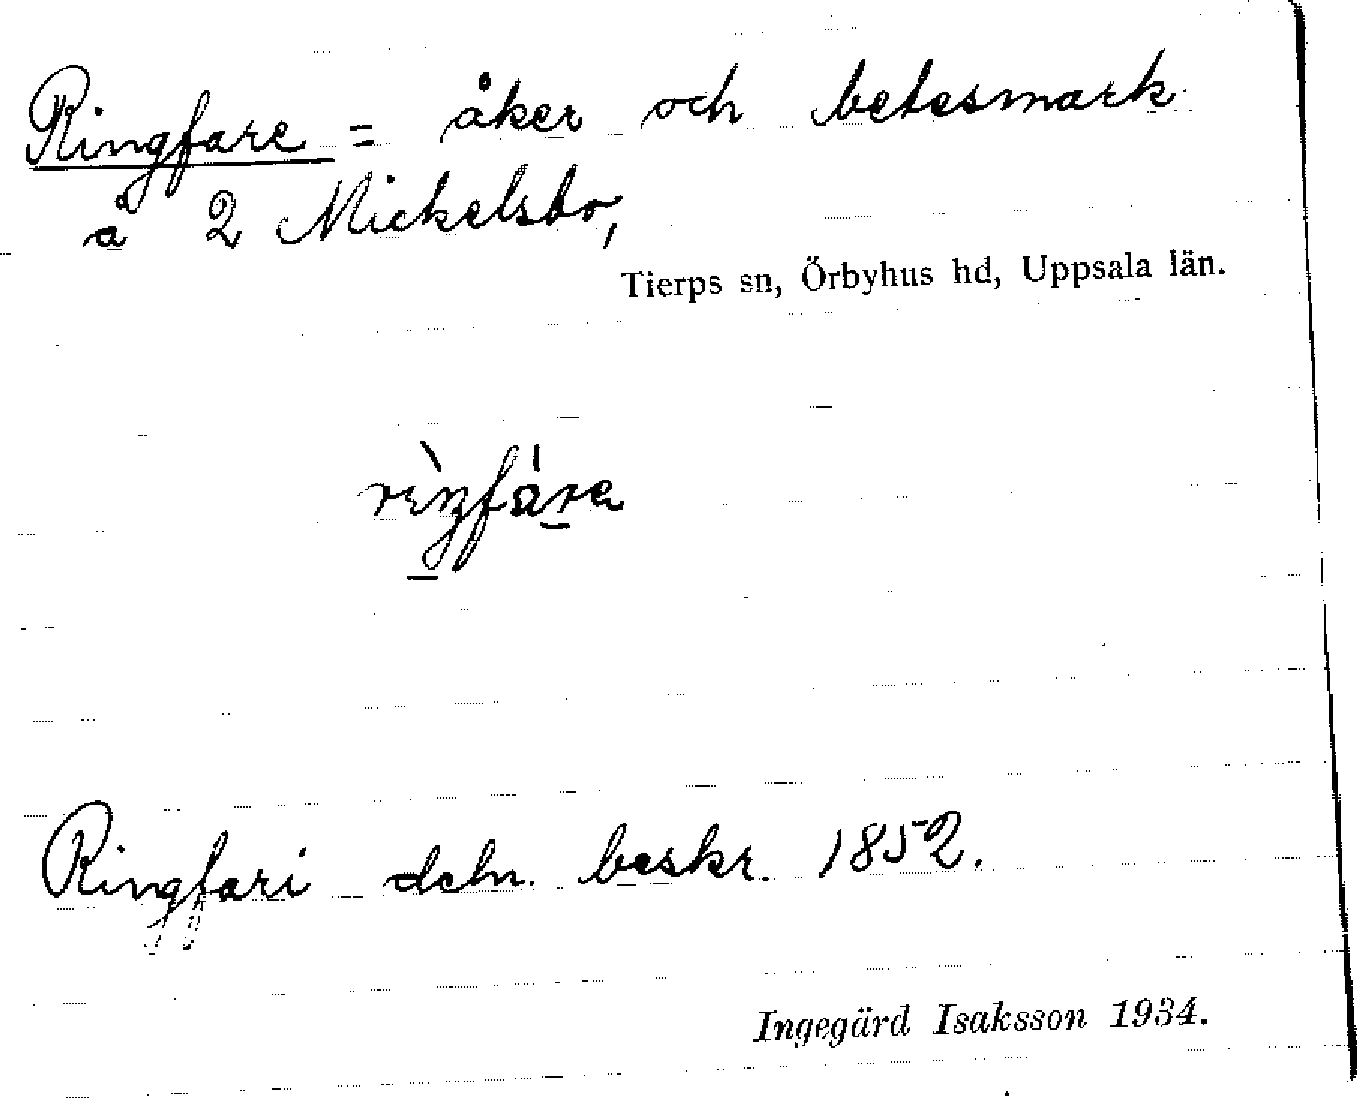 Ringfare = åker och betesmark
å 2 Mickelsbo,
Tierps sn, Örbyhus hd, Uppsala län.
Ringfari deln. beskr. 1852.
Ingegärd Isaksson 1934.